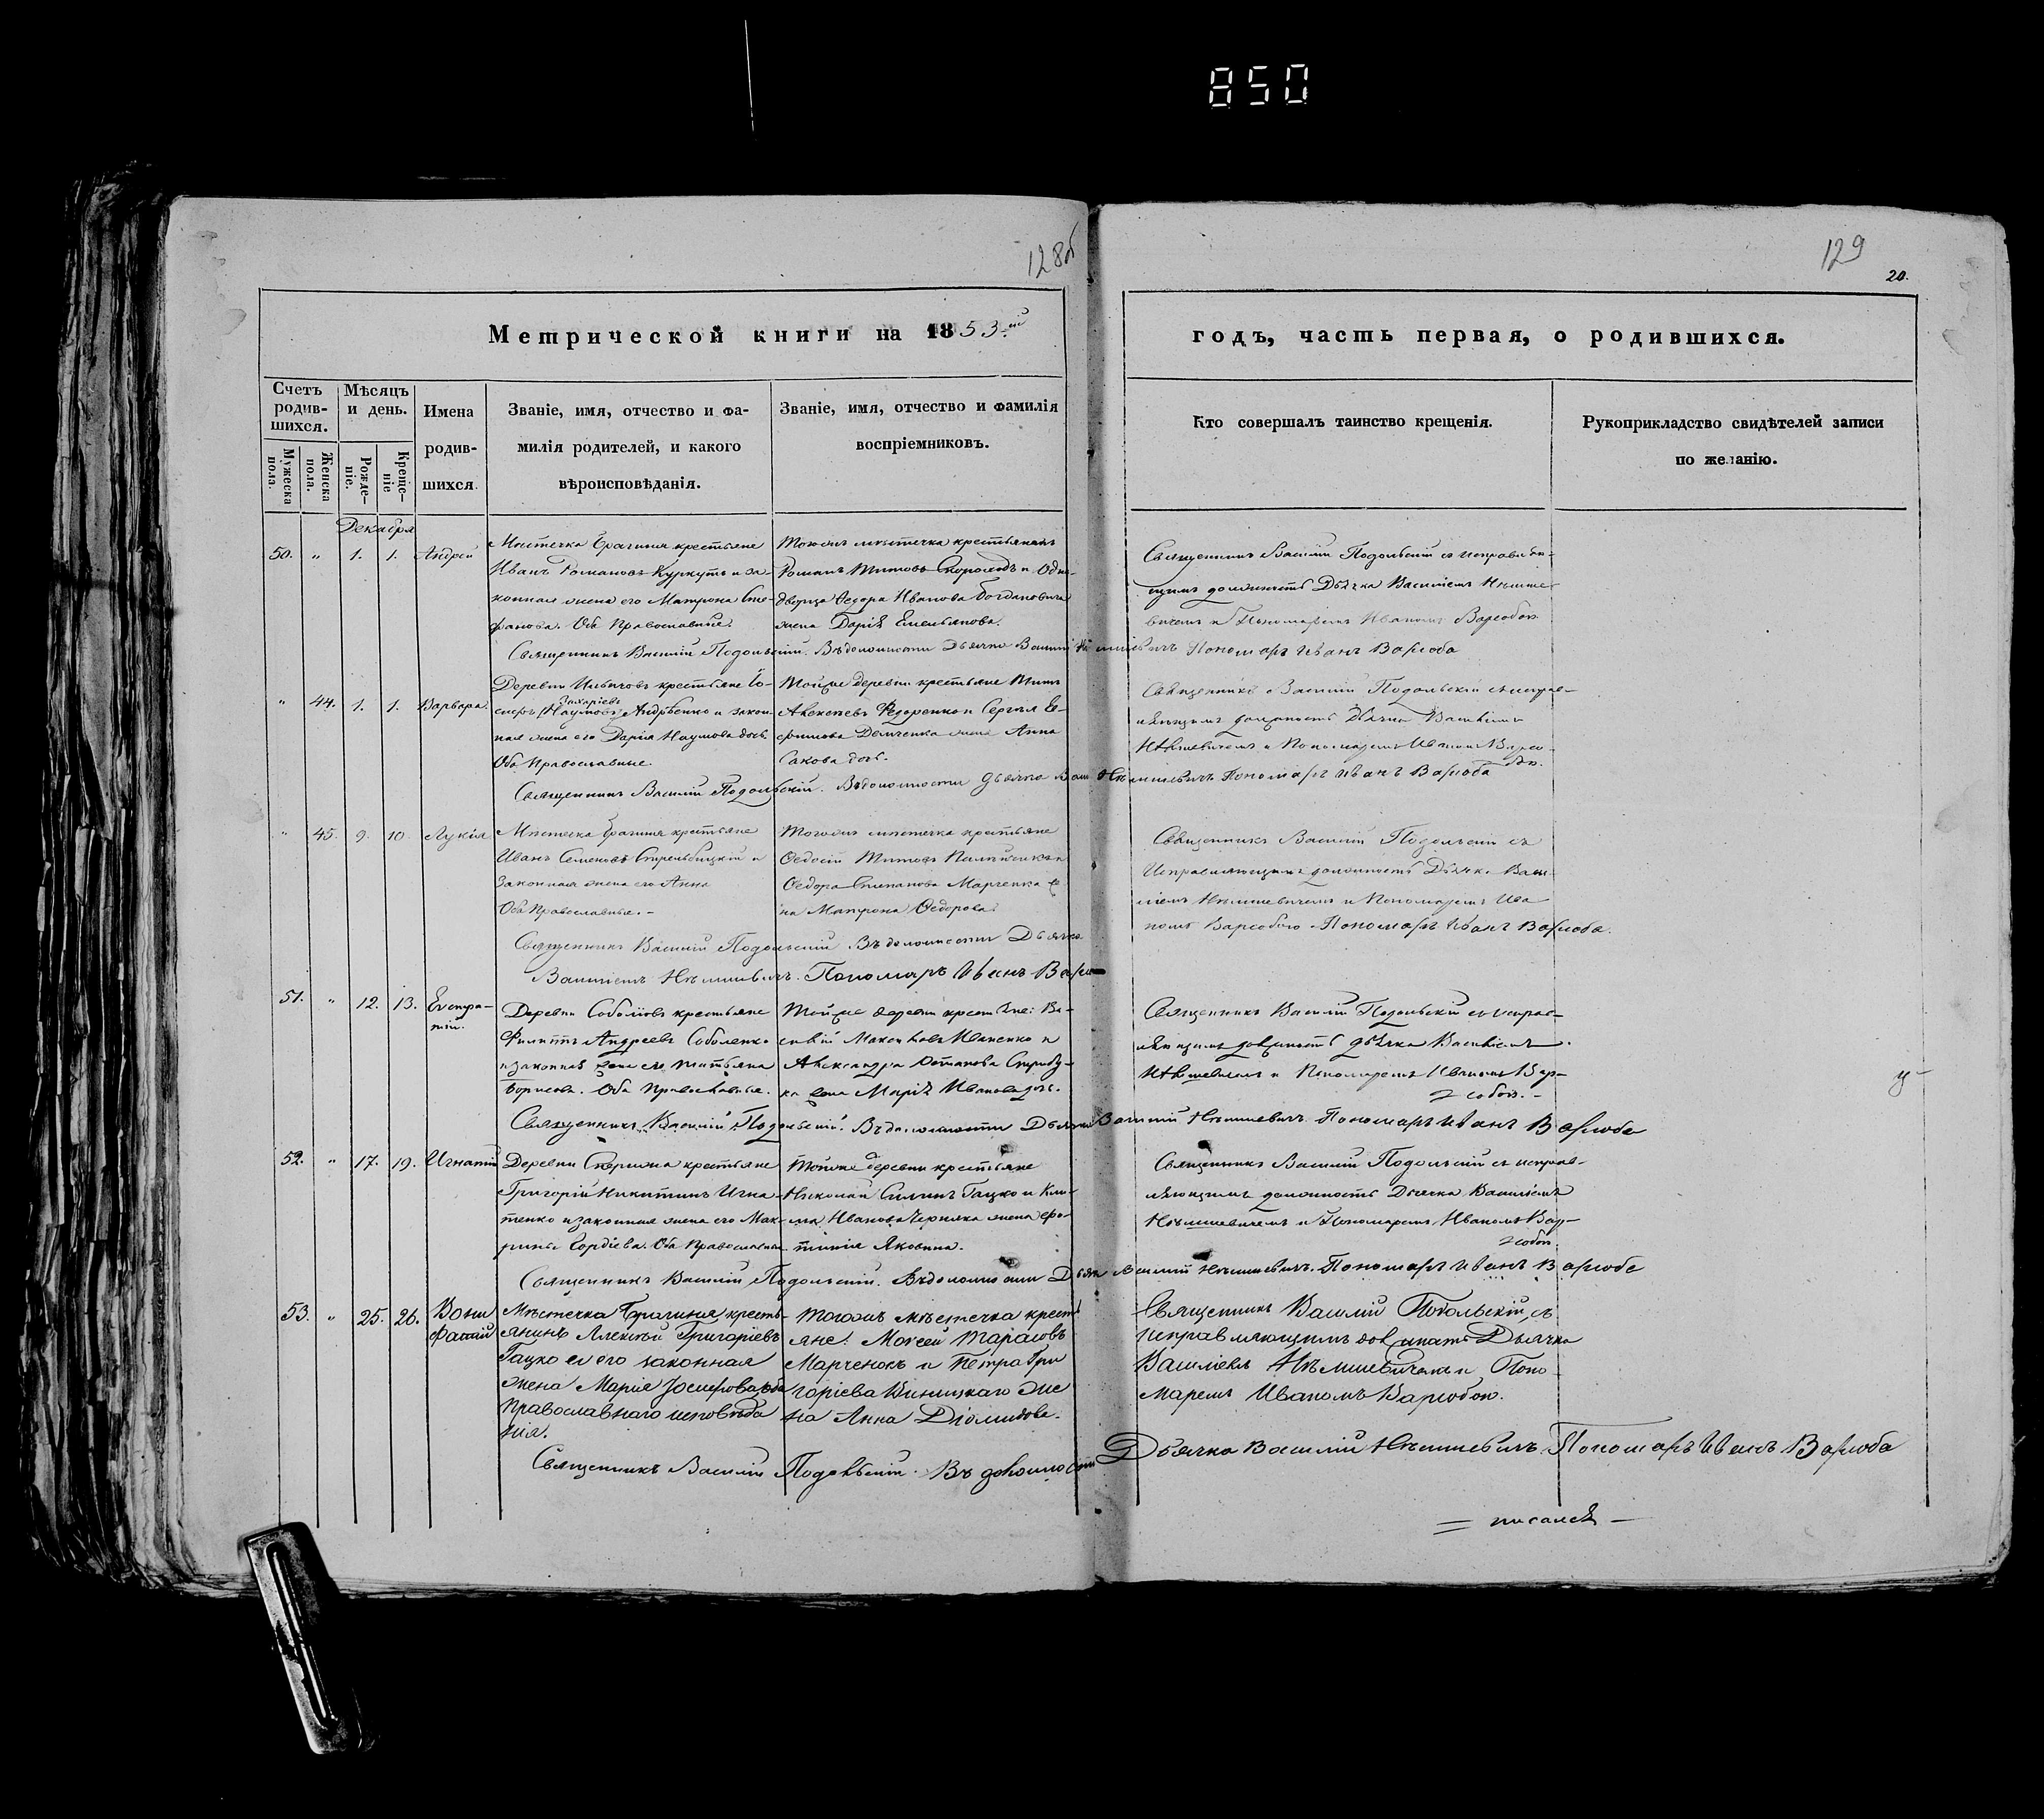 850
128об
129
20.
Метрической книги на 1853ій
годъ, часть первая, о родившихся.
Счетъ родив-шихся.
Мѣсяцъ и день.
Имена родив-шихся.
Званіе, имя, отчество и фа-
милія родителей, и какого
вѣроисповѣданія.
Званіе, имя, отчество и фамилія
воспріемниковъ.
Кто совершалъ таинство крещенія.
Рукоприкладство свидѣтелей записи
по желанію.
Мужеска пола.
Женска пола.
Рожде-ніе.
Креще-ніе
Декабря
50. „ 1. 1. Андрей
Мѣстечка Брагиня крестьяне
Иванъ Романовъ Куркуть и за-
конная жена его Матрона Сте-
фанова. Оба Православные.
Тогожъ мѣстечка крестьянинъ
Романъ Титовъ и Одно-
дворца Ѳедора Иванова Богдановича
жена Дарія Емельянова.
Священникъ Василій Подольскій съ исправляю-
щимъ должность Дьячка Василіемъ Нѣмше-
вичемъ и Пономаремъ Иваномъ Варсобою
Священникъ Василій Подольскій. Въ должности Дьячка Василій Нѣмшевичъ Пономарь Иванъ Варсоба
„ 44. 1. 1. Варвара.
Деревни крестьяне Іо-
сифъ Захаріевъ (Наумовъ) Андрѣенко и закон-
ная жена его Дарія Наумова дочь
Оба Православные.
Тойже деревни крестьяне Титъ
Алексѣевъ Федоренко и Сергѣя Е-
фимова Демченка жена Анна
Сакова дочь.
Священникъ Василій Подольскій съ исправ-
ляющимъ должность Дьячка Василіемъ
Нѣмшевичемъ и Пономаремъ Иваномъ Варсо-
бою.
Священникъ Василій Подольскій. Въ должности Дьячка Вас. Нѣмшевичъ Пономарь Иванъ Варсоба
„ 45. 9. 10. Лукія
Мѣстечка Брагиня крестьяне
Иванъ Семеновъ Стрельбицкій и
законная жена его Анна
Оба Православные.-
Тогожъ мѣстечка крестьяне
Ѳедосій Титовъ и
Ѳедора Степанова Марченка же-
на Матрона Ѳедорова.
Священникъ Василій Подольскій съ
Исправляющимъ должность Дьячка Васи-
ліемъ Нѣмшевичемъ и Пономаремъ Ива-
номъ Варсобою Пономарь Иванъ Варсоба.
Священникъ Василій Подольскій Въ должности Дьячка
Василіемъ Нѣмшевичъ. Пономарь Иванъ Варсо
51. „ 12. 13. Евстра-
тій.
Деревни Соболіовъ крестьяне
Филиппъ Андреевъ Соболенко
и законная жена его Татьяна
Борисова. Оба Православные.
Тойже деревни крестьяне: Ва-
силій Максимовъ Иваненко и
Александра Остапова
ка жена Марія Иванова дочь.
Священникъ Василій Подольскій съ исправ-
ляющимъ должность Дьячка Василіемъ
Нѣмшевичемъ и Пономаремъ Иваномъ Вар-
собою.-
Священникъ Василій Подольскій. Въ должности Дьячка Василій Нѣмшевичъ. Пономарь Иванъ Варсоба
52. „ 17. 19. Игнатій
Деревни крестьяне
Григорій Никитинъ Игна-
тенко и законная жена его Мак-
рина Гордіева. Оба Православные
Тойже деревни крестьяне
Николай Силинъ Гацко и Кли-
ма Иванова Черняка жена Ѳео-
тинія Яковина.
Священникъ Василій Подольскій съ исправ-
ляющимъ должность Дьячка Василіемъ
Нѣмшевичемъ и Пономаремъ Иваномъ Вар-
собою.
Священникъ Василій Подольскій. Въ должности Дьячка Василій Нѣмшевичъ. Пономарь Иванъ Варсоба
53. „ 25. 26. Вони
фатій
Мѣстечка Брагиня кресть-
янинъ Алексѣй Григоріевъ
Гацко и его законная
жена Марія Іосифова, оба
Православнаго исповѣда
нія.
Тогожъ мѣстечка кресть
яне: Моѵсей Тарасовъ
Марченокъ и Петра Гри
горіева Виницкаго же
на Анна Діомидова.
Священникъ Василій Подольскій, съ
исправляющимъ должность Дьячка
Василіемъ Нѣмшевичемъ и Поно-
маремъ Иваномъ Варсобою.
Священникъ Василій Подольскій. Въ должности Дьячка Василій Нѣмшевичъ. Пономарь Иванъ Варсоба
= писался -